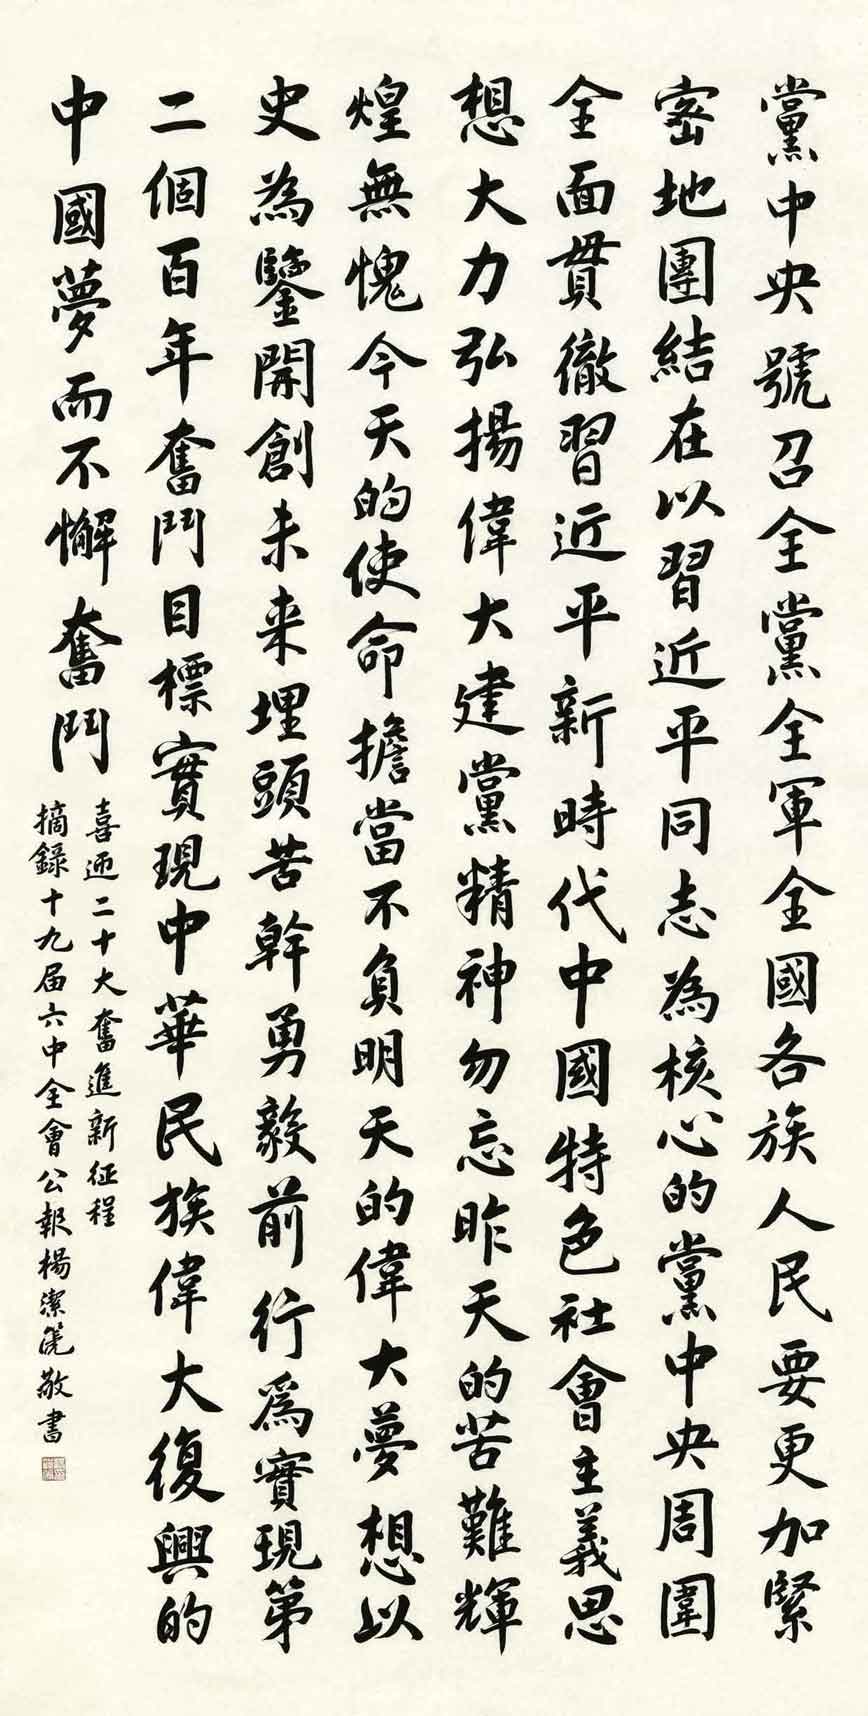 黨中央號召全黨全軍全國各族人民要更加緊
密地團結在以習近平同志為核心的黨中央周圍
全面貫徹習近平新時代中國特色社會主義思
想大力弘揚偉大建黨精神勿忘昨天的苦難輝
煌無愧今天的使命擔當不負明天的偉大夢想以
史為鑒開創未来埋頭苦幹勇毅前行為實現第
二個百年奮鬥目標實現中華民族偉大復興的
中國夢而不懈奮鬥
喜迎二十大奮進新征程
摘錄十九届六中全會公報楊潔篪敬書